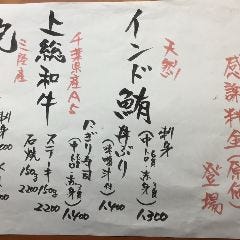 感謝料金(原価
登場
天然!
インド鮪
刺身
(中トロ・赤身) 1,300
丼ぶり
(味噌汁付) 1,400
にぎり寿司
(中トロ・赤身) 1,400
千葉県産A5
上総和牛
ステーキ 150g 2200
石焼 150g 2200
三陸産
刺身